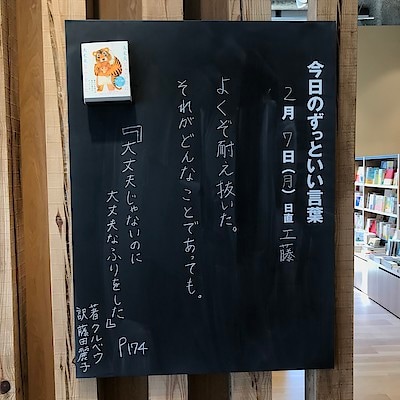 今日のずっといい言葉
2月7日(月) 日直 工藤
よくぞ耐え抜いた。
それがどんなことであっても。
『大丈夫じゃないのに
大丈夫なふりをした』
P174
著 クルベウ
訳 藤田麗子